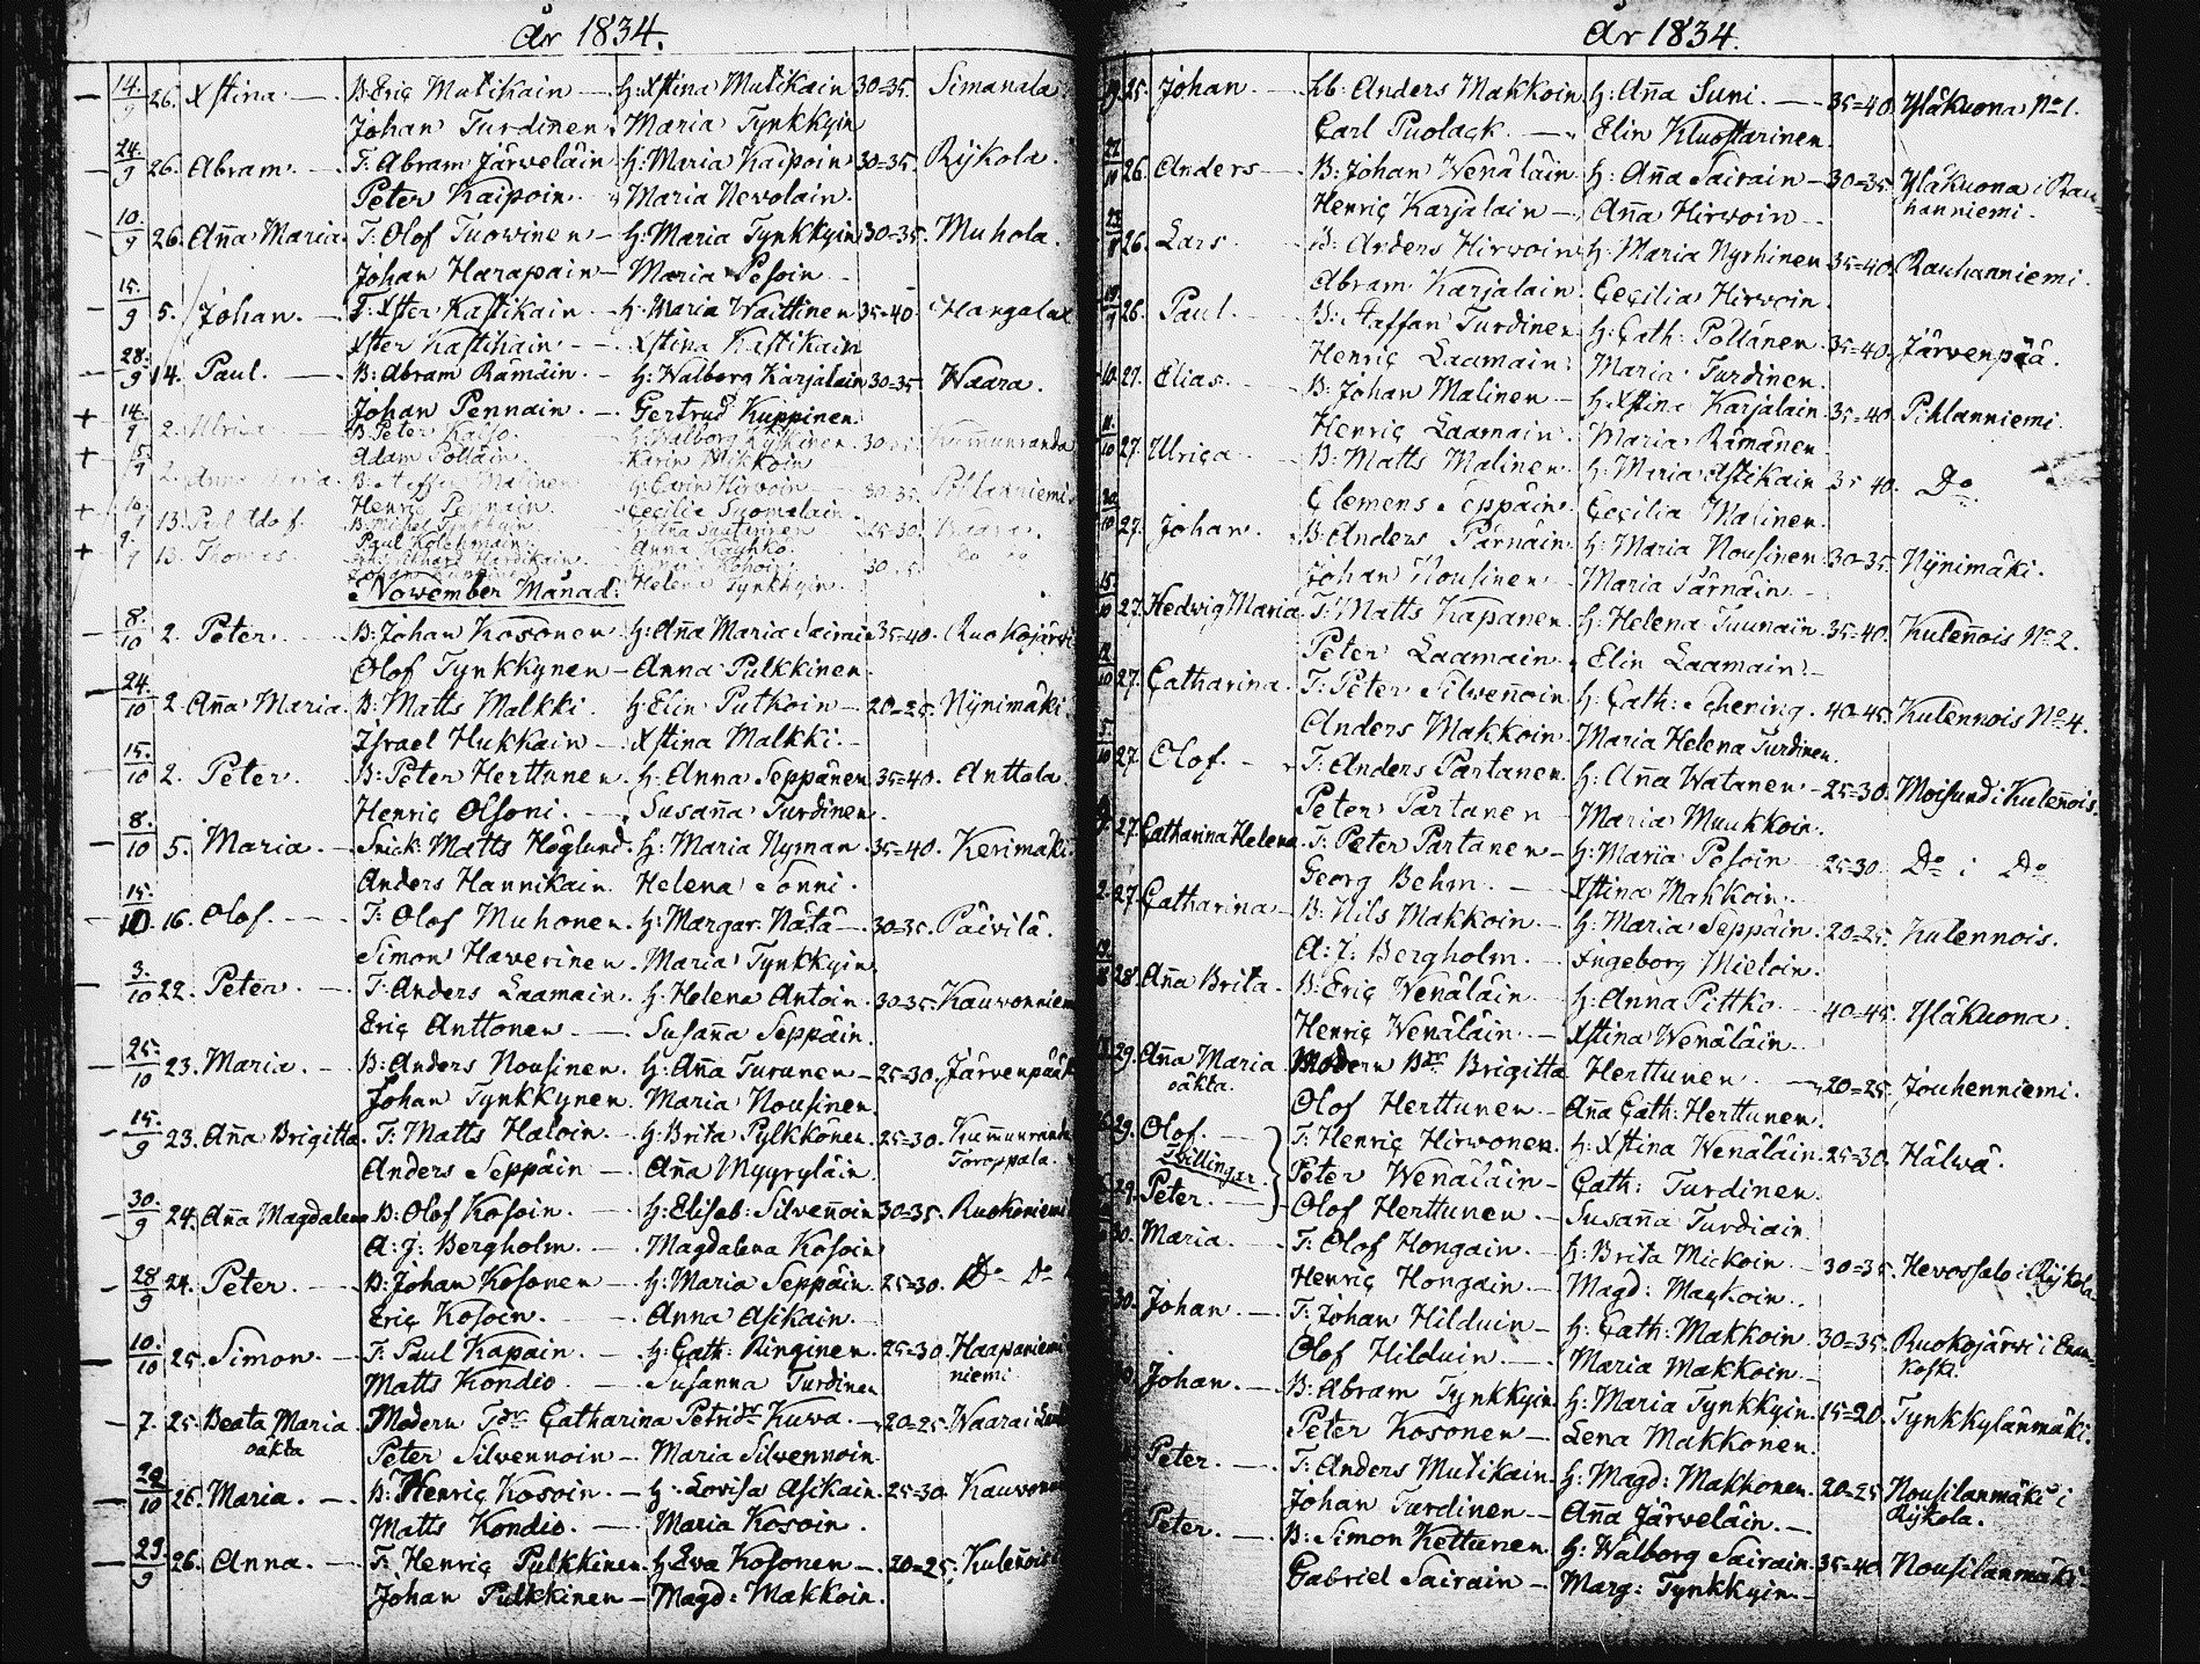 År 1834.
14/9 26. Xstina. B: Eric Mutikain H: Xstina Mutikain 30=35. Simanala
Johan Turdinen. Maria Tynkkyin
24/9 26. Abram. T: Abram Järveläin H: Maria Kaipoin 30=35. Rijkola.
Peter Kaipoin. Maria Nevolain.
10/9 26. Aña Maria. T: Olof Tuowinen H: Maria Tynkkyin 30=35. Muhola.
Johan Harapain Maria Pesoin
15/9 5. Johan. T: Xster Kastikain H: Maria Waittinen 35=40 Hangalax
Xster Kastikain Xstina Kastikain
28/9 14. Paul. B: Abram Rämäin. H: Walborg Karjalain 30=35. Waara.
Johan Pennain. Gertrud Kuppinen.
+ 14/9 2. Ulrica B: Peter H: Walborg Kummunranda
Adam Pölläin. Karin Mikkoin
+ 15/9 2. Anna Maria. B: Staffan Malinen H: Carin Hirvoin 30=35. Pihlanniemi
Henric Pennain. Cecilia Suomalain.
+ 13. Paul B: Michel Tynkkyin 25=30 Waara.
Paul Anna
+ 13. Thomas
Helena Tynkkyin.
November Månad.
8/10 2. Peter. B: Johan Kosonen H: Aña Maria Sairain 35=40. Ruokojärvi
Olof Tynkkynen Anna Pulkkinen.
24/10 2. Aña Maria. B: Matts Malkki. H: Elin Putkoin 20=25. Nijnimäki.
Israel Hukkain Xstina Malkki.
15/10 2. Peter. B: Peter Herttunen. H: Anna Seppänen 35=40. Anttola.
Henric Olsoni. Susaña Turdinen.
8/10 5. Maria. Snick: Matts Höglund. H: Maria Nyman. 35=40. Kerimäki.
Anders Hannikain. Helena Sonni.
15/10. 16. Olof. T: Olof Muhonen. H: Margar: Nätä 30=35. Päivilä.
Simon Haverinen. Maria Tynkkyin.
3/10 22. Peter. T: Anders Laamain. H: Helena Antoin. 30=35. Kauvonniem
Eric Anttonen. Susaña Seppäin.
25/10 23. Maria. B: Anders Nousinen. H: Aña Turunen 25=30. Järvenpää
Johan Tynkkynen. Maria Nousinen.
15/9 23. Aña Brigitta. T: Matts Haloin. H: Brita Pylkkönen. 25=30. Kummunranda
Anders Seppäin Aña Myyryläin. Toroppala.
30/9 24. Aña Magdalena B: Olof Kosoin. H: Elisab: Silveñoin 30=35. Ruokoniemi
A: J: Bergholm. Magdalena Kosoin
28/9 24. Peter. B: Johan Kosonen H: Maria Seppäin 25=30. Do Do
Eric Kosoin. Anna Asikain.
10/10 25. Simon. T: Paul Kapain. H: Cath: Ringinen. 25=30. Haapaniemi
Matts Kondio Susanna Turdinen niemi
7. 25. Beata Maria. Modern Tdr Catharina Petridr Kuwa. 20=25. Waara i
oäkta Peter Silvennoin Maria Silvennoin.
29/10 26. Maria. B: Henric Kosoin. H: Lovisa Asikain. 25=30. Kauvonn
Matts Kondio. Maria Kosoin.
23/9 26. Anna. T: Henric Pulkkinen. H: Eva Kosonen 20=25. Kuleñois
Johan Pulkkinen Magd: Makkoin.
År 1834.
25. Johan. Lb: Anders Makkoin H: Aña Suni. 35=40. Yläkuona No 1.
Carl Puolack. Elin Kluostarinen.
26. Anders B: Johan Wenäläin. H: Aña Sairain 30=35. Yläkuona i Rau-
Henric Karjalain Aña Hirvoin hanniemi.
26. Lars. B: Anders Hirvoin H: Maria Nyrhinen 35=40. Rauhanniemi.
Abram Karjalain. Cecilia Hirvoin.
26. Paul. B: Staffan Turdinen H: Cath: Pöllänen. 35=40. Järvenpää.
Henric Laamain. Maria Turdinen.
27. Elias. B: Johan Malinen H: Xstina Karjalain. 35=40. Pihlanniemi.
Henric Laamain. Maria Rämänen.
27. Ulrica. B: Matts Malinen. H: Maria Astikain 35 40. Do
Clemens Seppäin. Cecilia Malinen.
27. Johan. B: Anders Pärnäin. H: Maria Nousinen 30=35. Nijnimäki.
Johan Nousinen Maria Pärnäin.
15/10 27. Hedwig Maria. T: Matts Kapanen. H: Helena Tuunain. 35=40. Kuleñois No 2.
Peter Laamain. Elin Laamain.
27. Catharina. T: Peter Silveñoin. H: Cath: Schering. 40=45. Kulennois No 4.
Anders Makkoin. Maria Helena Turdinen.
27. Olof. T: Anders Partanen. H: Aña Watanen 25=30. Moisund i Kuleñois.
Peter Partanen Maria Muukkoin.
27. Catharina Helena. T: Peter Partanen H: Maria Pesoin 25=30. Do i Do
Georg Behm. Xstina Makkoin.
27. Catharina B: Nils Makkoin. H: Maria Seppäin. 20=25. Kulennois.
A: J: Bergholm. Ingeborg Mieloin.
28. Aña Brita. B: Eric Wenäläin. H: Anna Pittko. 40=45. Yläkuona.
Henric Wenäläin. Xstina Wenäläin.
29. Aña Maria. Modern Bdr Brigitta Herttunen. 20=25. Jouhenniemi.
oäkta. Olof Herttunen. Aña Cath: Herttunen.
29. Olof. T: Henric Hirvonen. H: Xstina Wenäläin. 25=30. Hälwä.
Tvillingar. Peter Wenäläin Cath: Turdinen.
29. Peter. Olof Herttunen. Susaña Turdiain
30. Maria. T: Olof Hongain. H: Brita Mickoin 30=35. Hevossalo i Rijkola
Henric Hongain. Magd: Mackoin.
30. Johan. T: Johan Hilduin H: Cath: Makkoin. 30=35. Ruokojärvi i Enan-
Olof Hilduin. Maria Makkoin. koski.
Johan. B: Abram Tynkkyin. H: Maria Tynkkyin. 15=20. Tynkkylänmäki.
Peter Kosonen Lena Makkonen.
Peter. T: Anders Mutikain. H: Magd: Makkonen. 20=25 Nousilanmäki i
Johan Turdinen Aña Järveläin. Rijkola.
Peter. B: Simon Kettunen. H: Walborg Sairain. 35=40. Nousilanmäki
Gabriel Sairain Marg: Tynkkyin.